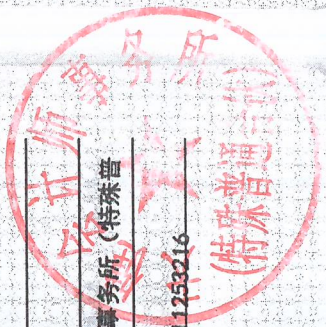 会计师事务所
(特殊普通合伙)
事务所（特殊普
1256216